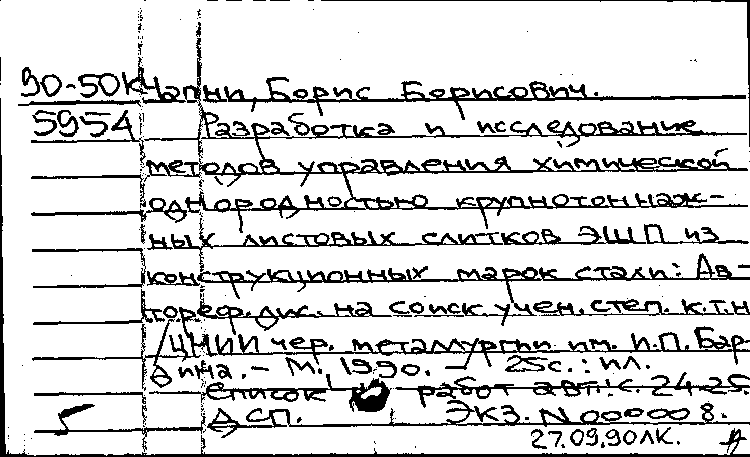 90-50К Чапни, Борис Борисович.
5954 Разработка и исследование
методов управления химической
однородностью крупнотоннаж-
ных листовых слитков ЭШП из
конструкционных марок стали: Ав-
тореф. дис. на соиск. учен. степ. к.т.н
/ЦНИИ чер. металлургии им. И.П. Бар-
дина. - М., 1990. - 25с.: ил.
Список работ авт.: с. 24-25
ДСП. ЭКЗ. N 000008.
27.09.90 ЛК.